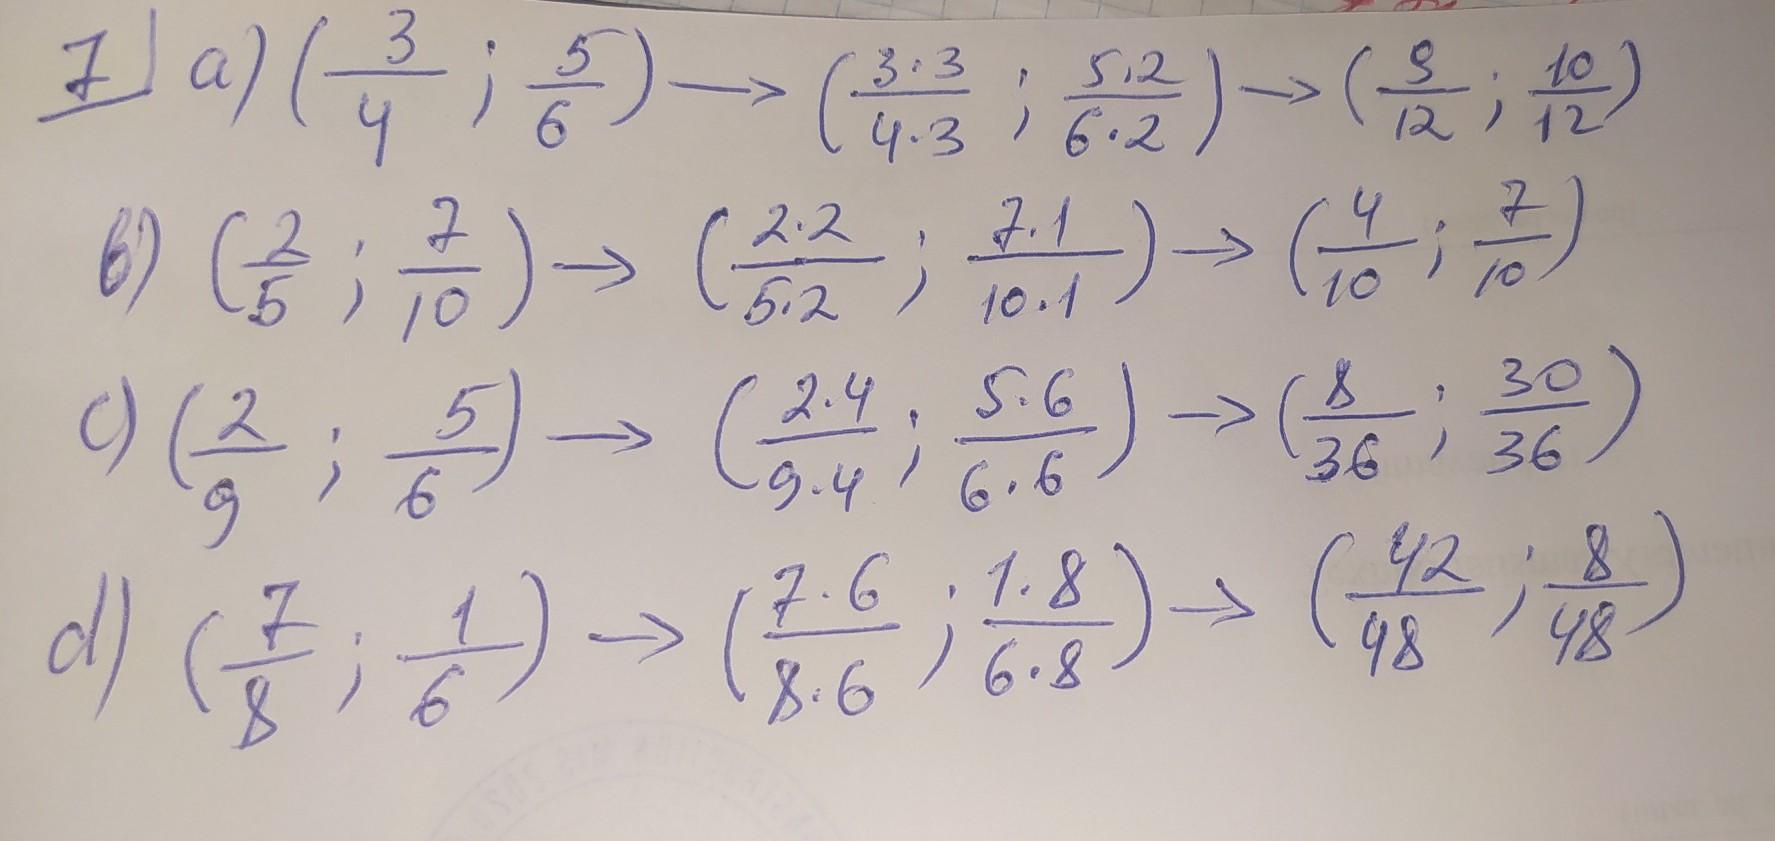 7 a) (3/4 ; 5/6) → (3·3/4·3 ; 5·2/6·2) → (9/12 ; 10/12)
b) (2/5 ; 7/10) → (2·2/5·2 ; 7·1/10·1) → (4/10 ; 7/10)
c) (2/9 ; 5/6) → (2·4/9·4 ; 5·6/6·6) → (8/36 ; 30/36)
d) (7/8 ; 1/6) → (7·6/8·6 ; 1·8/6·8) → (42/48 ; 8/48)